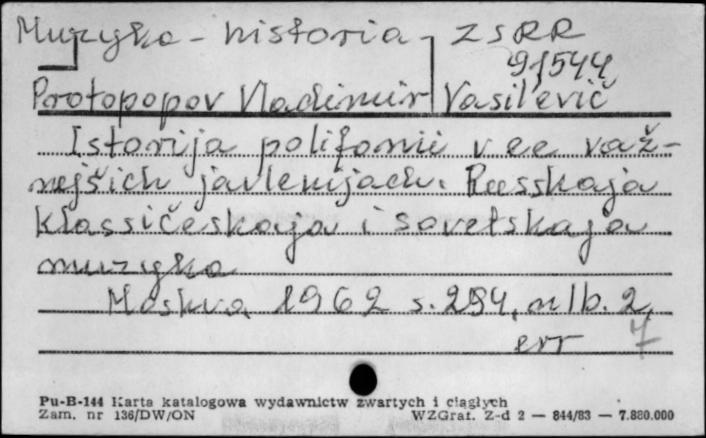 Muzyka - historia - ZSRR
91544
Protopopov Vladimir Vasil'evič
Istorija polifonii v ee važ-
nejšich javlenijach. Russkaja
klassičeskaja i sovetskaja
muzyka
Moskva 1962 s. 294, nlb. 2,
err 7
Pu-B-144 Karta katalogowa wydawnictw zwartych i ciągłych
Zam. nr 136/DW/ON WZGraf. Z-d 2 — 844/83 — 7.880.000